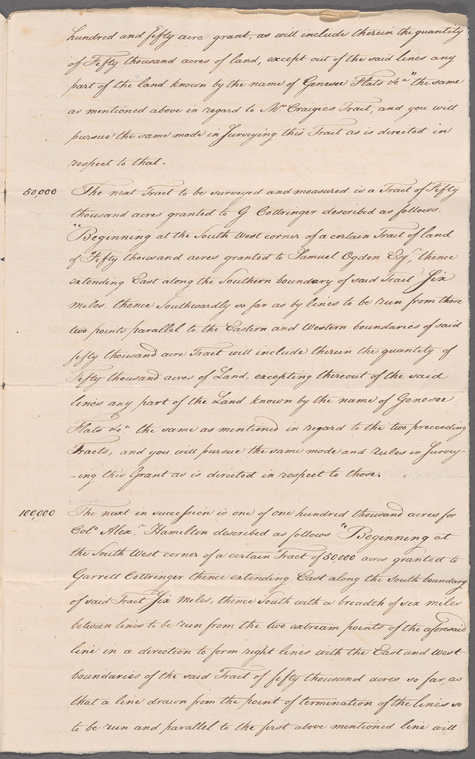 hundred and fifty acre grant, as will include therein the quantity
of Fifty thousand acres of land, except out of the said lines any
part of the land known by the name of Genesee Flats &c." the same
as mentioned above in regard to Mr. Craigies Tract, and you will
pursue the same mode in Surveying this Tract as is directed in
respect to that.
50,000 The next Tract to be surveyed and measured is a Tract of Fifty
thousand acres granted to G Cottringer described as follows.
"Beginning at the South West corner of a certain Tract of land
of Fifty thousand acres granted to Samuel Ogden Esqr. thence
extending East along the Southern boundary of said Tract Six
miles, thence Southwardly so far as by lines to be run from those
two points parallel to the Eastern and Western boundaries of said
fifty thousand acre Tract will include therein the quantity of
Fifty thousand acres of Land, excepting thereout of the said
lines any part of the Land known by the name of Genesee
Flats &c." the same as mentioned in regard to the two preceeding
Tracts, and you will pursue the same mode and rules in Survey-
-ing this Grant as is directed in respect to those.
100,000 The next in succession is one of one hundred thousand acres for
Colo. Alexr. Hamilton described as follows "Beginning at
the South West corner of a certain Tract of 50,000 acres granted to
Garrett Cottringer thence extending East along the South boundary
of said Tract Six Miles, thence South with a breadth of six miles
between lines to be run from the two extream points of the aforesaid
line in a direction to form right lines with the East and West
boundaries of the said Tract of fifty thousand acres so far, as
that a line drawn from the point of termination of the lines so
to be run and parallel to the first above mentioned line will